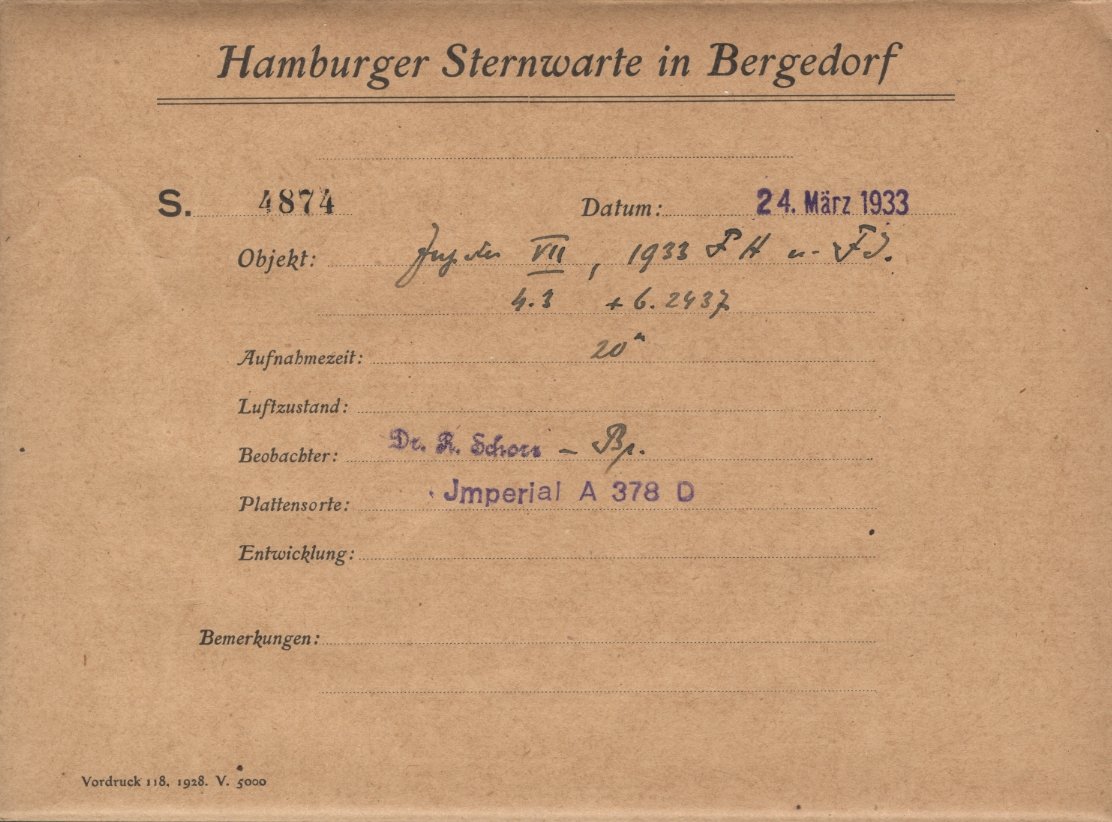 Hamburger Sternwarte in Bergedorf
S. 4874 Datum: 24. März 1933
Objekt: Jupiter VII, 1933 FH u. FJ.
4.3 + 6.2437
Aufnahmezeit: 20m
Luftzustand:
Beobachter: Dr. R. Schorr –
Plattensorte: Jmperial A 378 D
Entwicklung:
Bemerkungen:
Vordruck 118. 1928. V. 5000